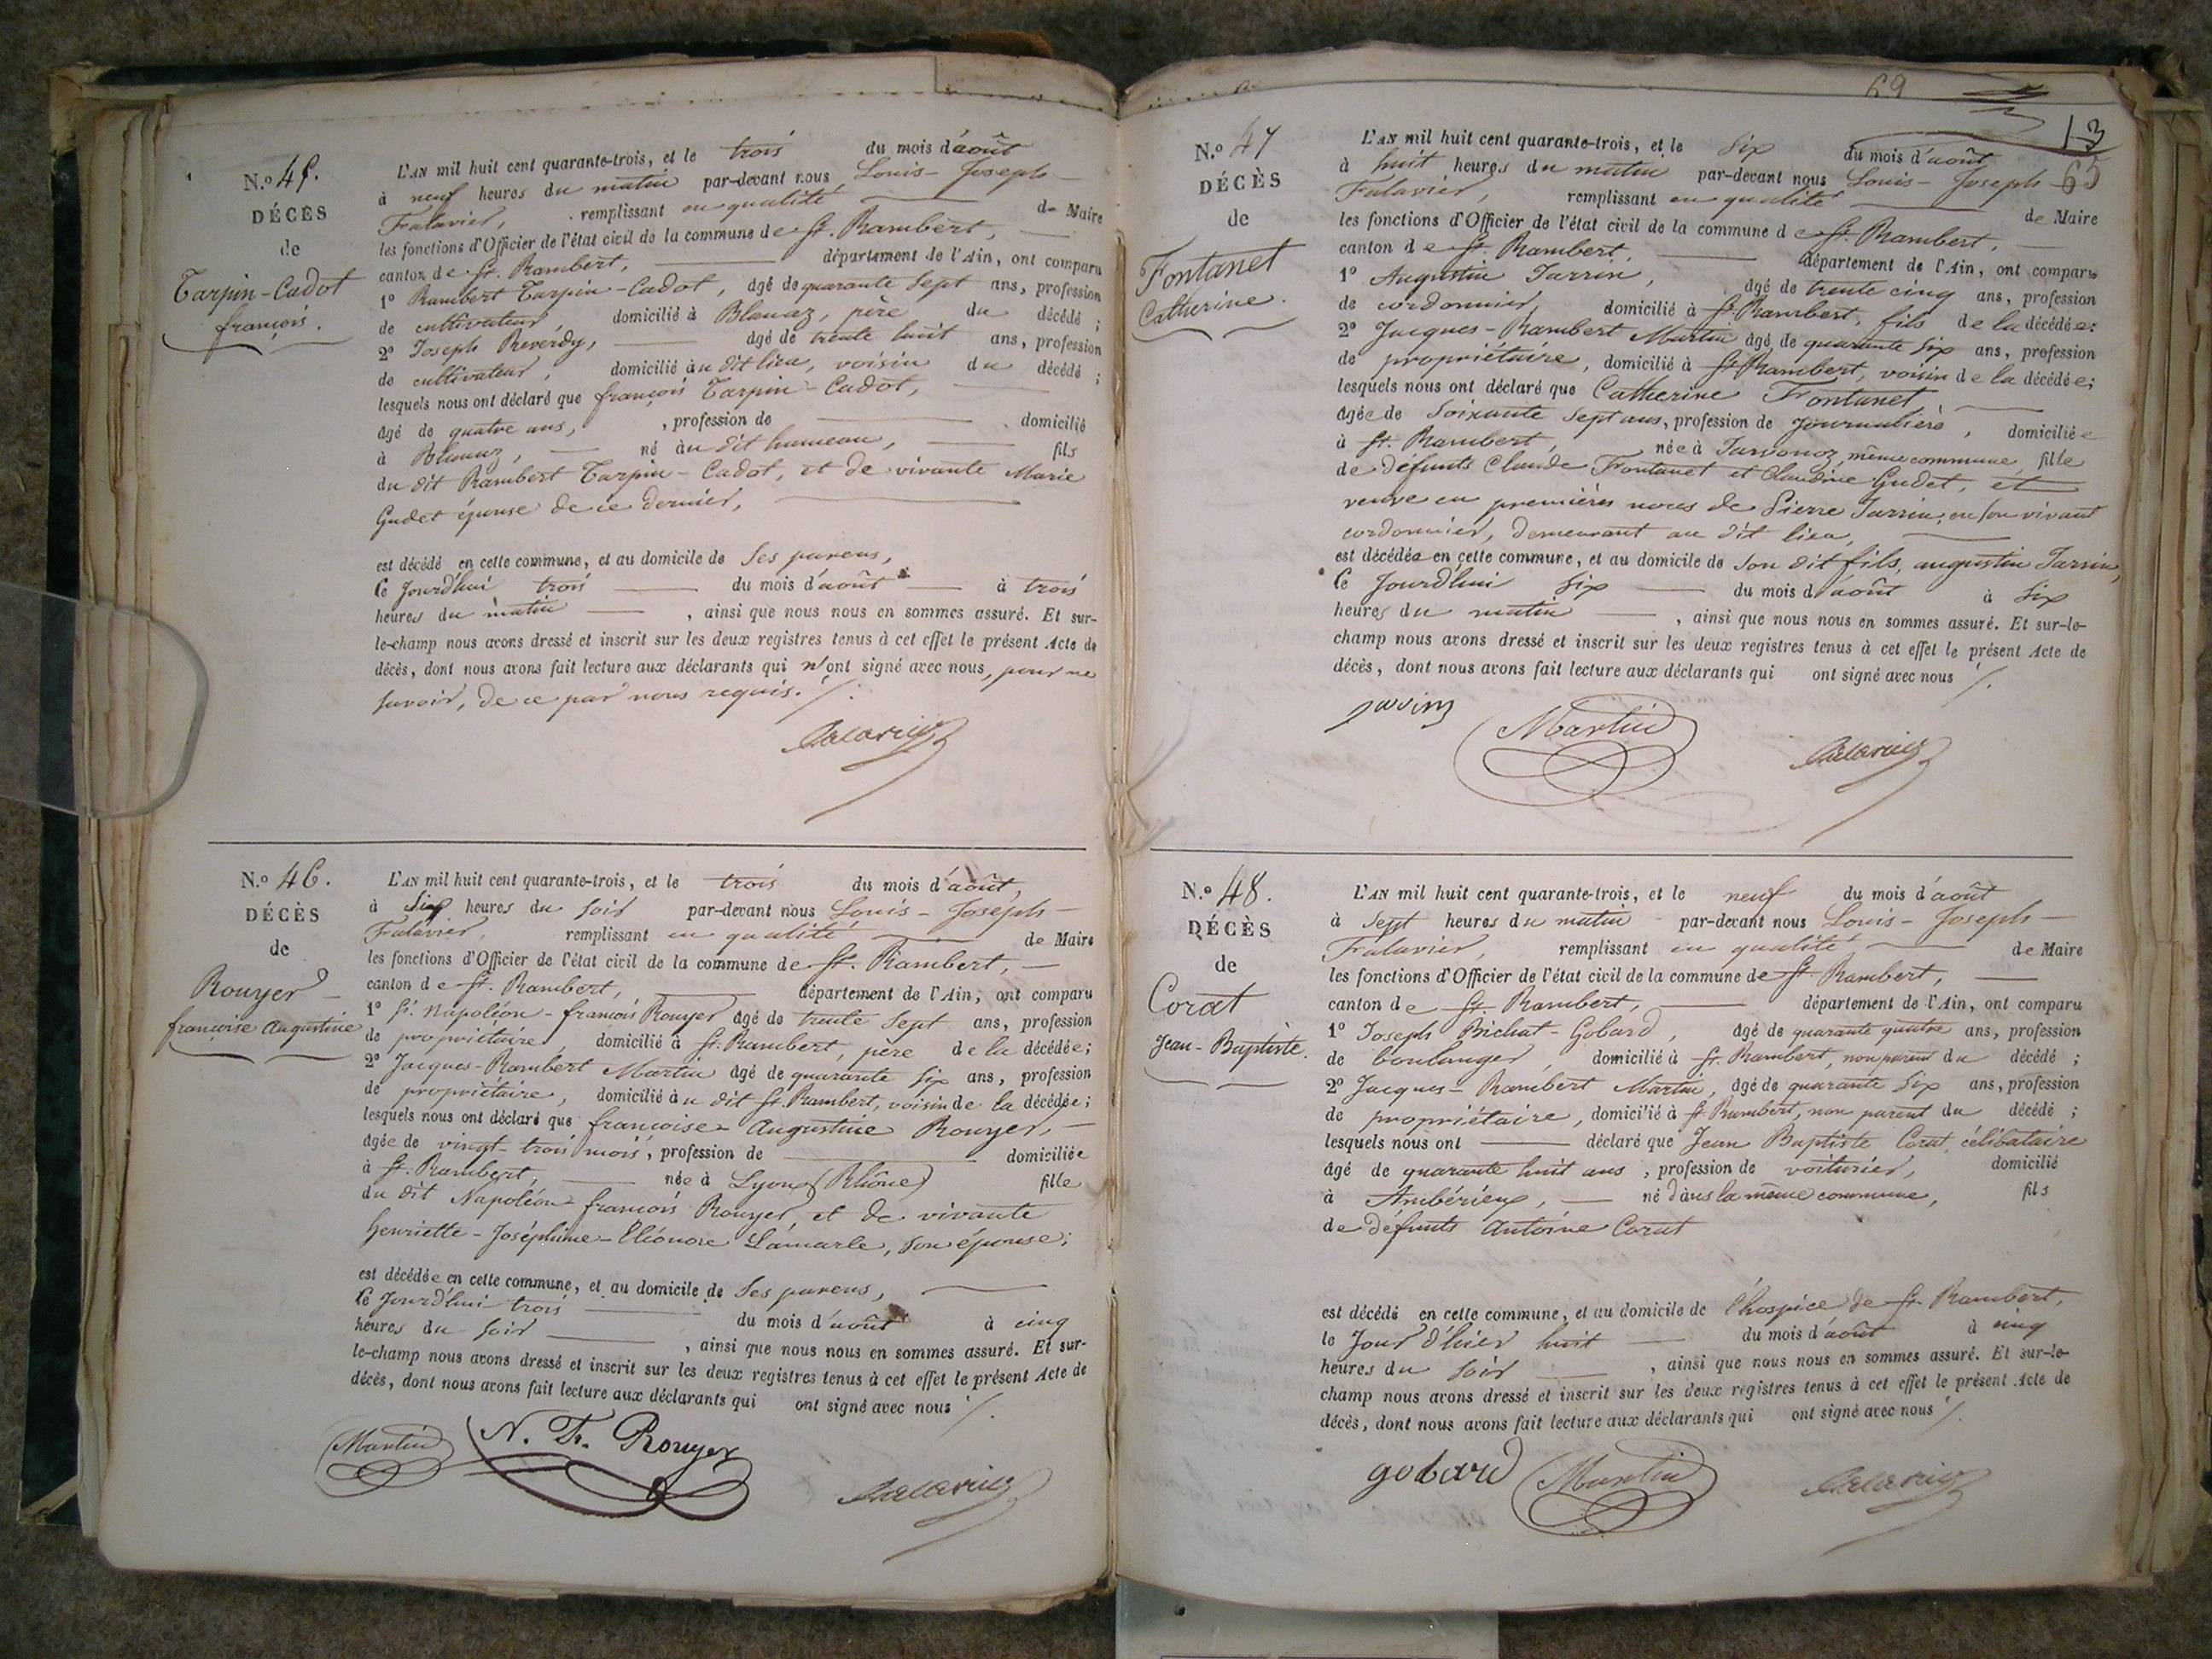 N.o 45.
DÉCÈS
de
Tarpin-Cadot
françois.
L'AN mil huit cent quarante-trois, et le trois du mois d'août
à neuf heures du matin par-devant nous Louis-Joseph-
Falavier, remplissant en qualité de Maire
les fonctions d'Officier de l'état civil de la commune de St. Rambert,
canton de St. Rambert, département de l'Ain, ont comparu
1o Rambert Tarpin-Cadot, âgé de quarante sept ans, profession
de cultivateur domicilié à Blanaz, père du décédé ;
2o Joseph Reverdy, âgé de trente huit ans, profession
de cultivateur, domicilié au dit lieu, voisin du décédé ;
lesquels nous ont déclaré que françois Tarpin-Cadot,
âgé de quatre ans, , profession de domicilié
à Blanaz, né au dit hameau, fils
du dit Rambert Tarpin-Cadot, et de vivante Marie
Gudet épouse de ce dernier,
est décédé en cette commune, et au domicile de ses parens,
le jourd'hui trois du mois d'août à trois
heures du matin , ainsi que nous nous en sommes assuré. Et sur-
le-champ nous avons dressé et inscrit sur les deux registres tenus à cet effet le présent Acte de
décès, dont nous avons fait lecture aux déclarants qui n'ont signé avec nous, pour ne
savoir, de ce par nous requis. /.
Falavier
N.o 46.
DÉCÈS
de
Rouyer
françoise Augustine
L'AN mil huit cent quarante-trois, et le trois du mois d'août,
à six heures du soir par-devant nous Louis-Joseph-
Falavier, remplissant en qualité de Maire
les fonctions d'Officier de l'état civil de la commune de St. Rambert,
canton de St. Rambert, département de l'Ain, ont comparu
1o Napoléon-françois Rouyer âgé de trente sept ans, profession
de propriétaire, domicilié à St. Rambert, père de la décédée;
2o Jacques-Rambert Martin âgé de quarante six ans, profession
de propriétaire, domicilié au dit St. Rambert, voisin de la décédée;
lesquels nous ont déclaré que françoise-Augustine Rouyer,
âgée de vingt-trois mois, profession de domiciliée
à St. Rambert, née à Lyon (Rhône) fille
du dit Napoléon-françois Rouyer, et de vivante
henriette-Joséphine-Eléonore Lamarle, son épouse;
est décédée en cette commune, et au domicile de ses parens,
le jourd'hui trois du mois d'août à cinq
heures du soir , ainsi que nous nous en sommes assuré. Et sur-
le-champ nous avons dressé et inscrit sur les deux registres tenus à cet effet le présent Acte de
décès, dont nous avons fait lecture aux déclarants qui ont signé avec nous /.
Martin N. F. Rouyer
Falavier
69
13
65
N.o 47
DÉCÈS
de
Fontanet
Catherine.
L'AN mil huit cent quarante-trois, et le six du mois d'août
à huit heures du matin par-devant nous Louis-Joseph-
Falavier, remplissant en qualité de Maire
les fonctions d'Officier de l'état civil de la commune de St. Rambert,
canton de St. Rambert, département de l'Ain, ont comparu
1o Augustin Jarrin, âgé de trente cinq ans, profession
de cordonnier, domicilié à St. Rambert, fils de la décédée;
2o Jacques-Rambert Martin âgé de quarante six ans, profession
de propriétaire, domicilié à St. Rambert, voisin de la décédée;
lesquels nous ont déclaré que Catherine Fontanet
âgée de soixante sept ans, profession de journalière, domiciliée
à St. Rambert, née à Javonoz, même commune, fille
de défunts Claude Fontanet et Claudine Gudet, et
veuve en premières noces de Pierre Jarrin, en son vivant
cordonnier, demeurant au dit lieu,
est décédée en cette commune, et au domicile de son dit fils, augustin Jarrin,
le jourd'hui six du mois d'août à six
heures du matin , ainsi que nous nous en sommes assuré. Et sur-le-
champ nous avons dressé et inscrit sur les deux registres tenus à cet effet le présent Acte de
décès, dont nous avons fait lecture aux déclarants qui ont signé avec nous /.
jarrin
Martin
Falavier
N.o 48.
DÉCÈS
de
Corat
Jean-Baptiste.
L'AN mil huit cent quarante-trois, et le neuf du mois d'août
à sept heures du matin par-devant nous Louis-Joseph-
Falavier, remplissant en qualité de Maire
les fonctions d'Officier de l'état civil de la commune de St. Rambert,
canton de St. Rambert, département de l'Ain, ont comparu
1o Joseph Bichat-Gobard, âgé de quarante quatre ans, profession
de boulanger, domicilié à St. Rambert, non parent du décédé ;
2o Jacques-Rambert Martin, âgé de quarante six ans, profession
de propriétaire, domicilié à St. Rambert, non parent du décédé ;
lesquels nous ont déclaré que Jean Baptiste Corat, célibataire
âgé de quarante huit ans, profession de voiturier, domicilié
à Ambérieux, né dans la même commune, fils
de défunts Antoine Corat
est décédé en cette commune, et au domicile de l'hospice de St. Rambert,
le jour d'hier huit du mois d'août à cinq
heures du soir , ainsi que nous nous en sommes assuré. Et sur-le-
champ nous avons dressé et inscrit sur les deux registres tenus à cet effet le présent Acte de
décès, dont nous avons fait lecture aux déclarants qui ont signé avec nous /.
gobard Martin Falavier